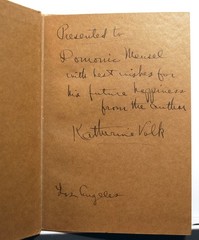 Presented to
Domonic Mensel
with best wishes for
his future happiness
from the author
Katharine Volk
Los Angeles